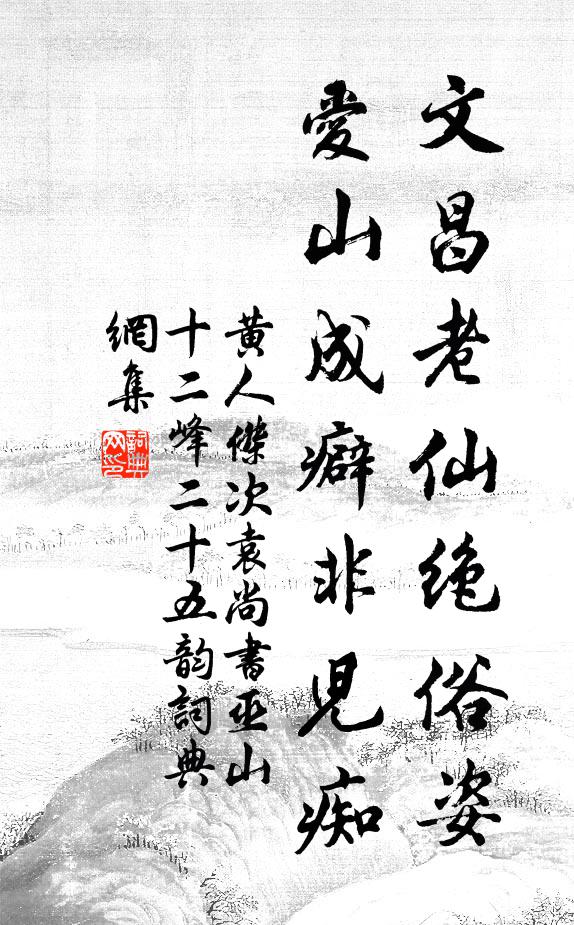 文昌老仙绝俗姿
愛山成癖非兒痴
黃人傑次袁尚書巫山
十二峰二十五韵詞典
網集
詞典
网印